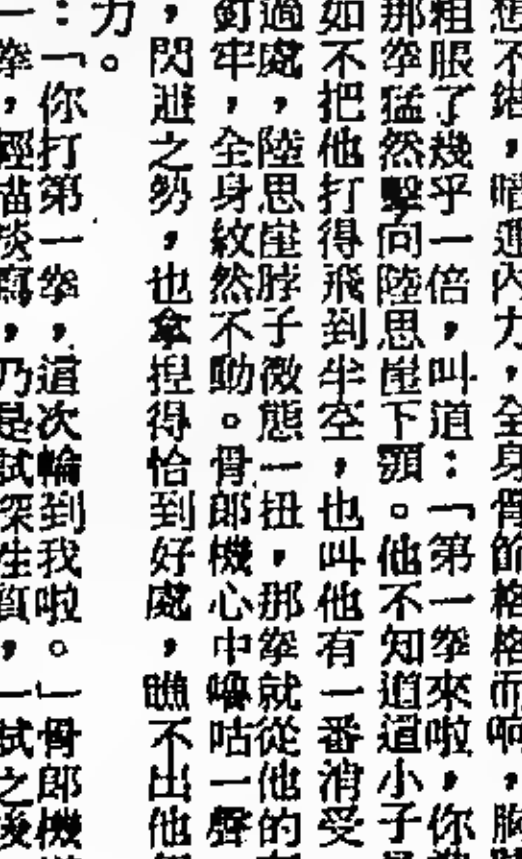 想不錯，暗運內力，全身骨節格格而响，胸
粗脹了幾乎一倍，叫道：「第一拳來啦，你
那拳猛然擊向陸思崖下頦。他不知道這小子
如不把他打得飛到半空，也叫他有一番消受
過處，陸思崖脖子微態一扭，那拳就從他的
釘牢，全身紋然不動。骨郎機心中嚕咕一聲
，閃避之勢，也拿捏得恰到好處，瞧不出他
力。
：「你打第一拳，這次輪到我啦。」骨郎機
一拳，輕描淡寫，乃是試探性質，一試之後